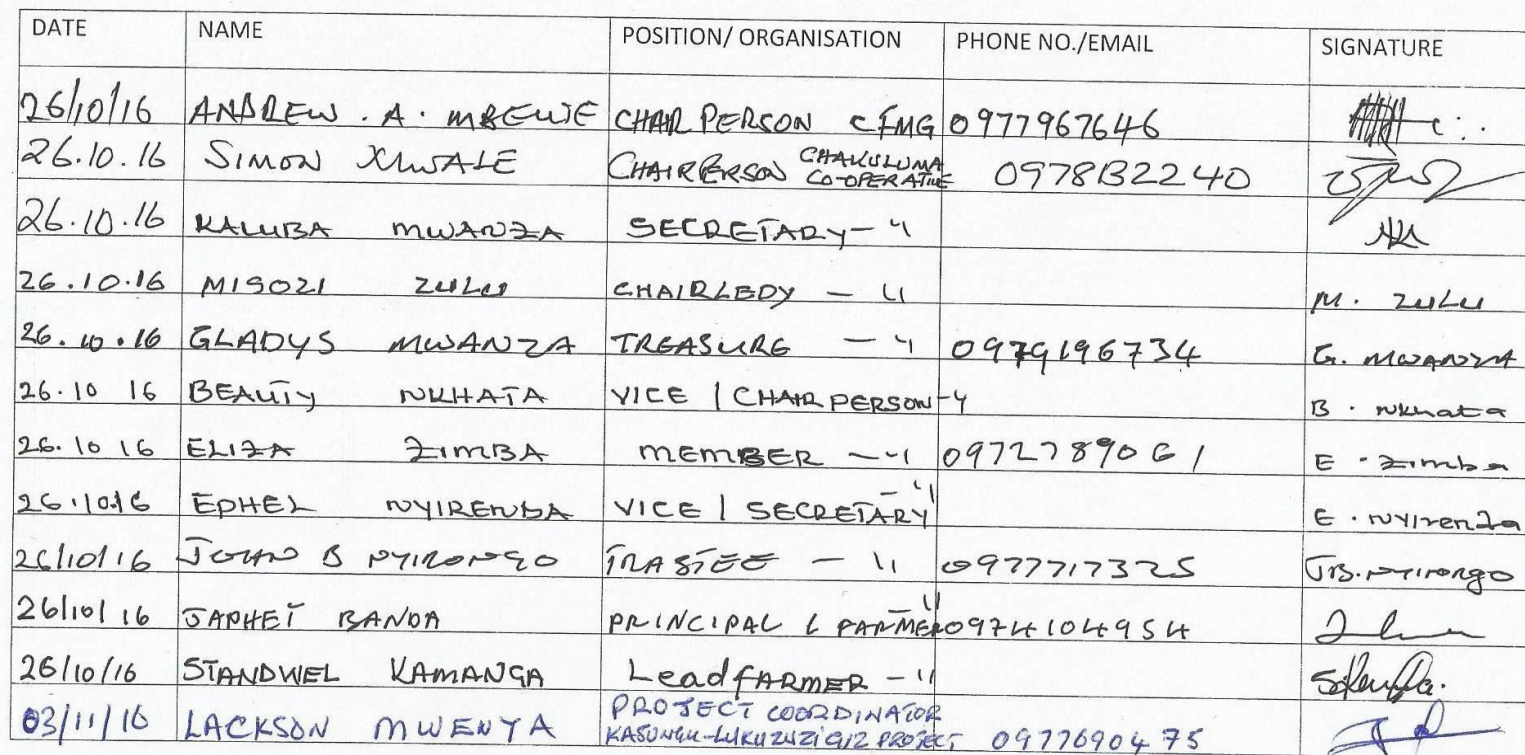 DATE NAME POSITION/ ORGANISATION PHONE NO./EMAIL SIGNATURE
26/10/16 ANDREW . A . MBEWE CHAIR PERSON CFMG 0977967646
26.10.16 SIMON CHAIRPERSON CHAKULUMA CO-OPERATIVE 0978132240
26.10.16 KALUBA MWANZA SECRETARY - "
26.10.16 MISOZI ZULU CHAIRLEDY - " M. ZULU
26.10.16 GLADYS MWANZA TREASURE - " 0979196734 G. MWANZA
26.10 16 BEAUTY NKHATA VICE / CHAIR PERSON - " B. Nkhata
26.10 16 ELIZA ZIMBA MEMBER - " 0972789061 E. Zimba
26.10.16 EPHEL NYIRENDA VICE / SECRETARY - " E. Nyirenda
26/10/16 JOHN B NYIRONGO TRASTEE - " 0977717325 JB. Nyirongo
26/10/16 JAPHET BANDA PRINCIPAL L FARMER - " 0974104954
26/10/16 STANDWEL KAMANGA Lead FARMER - "
03/11/16 LACKSON MWENYA PROJECT COORDINATOR KASUNGU-LUKUZUZI GIZ PROJECT 0977690475